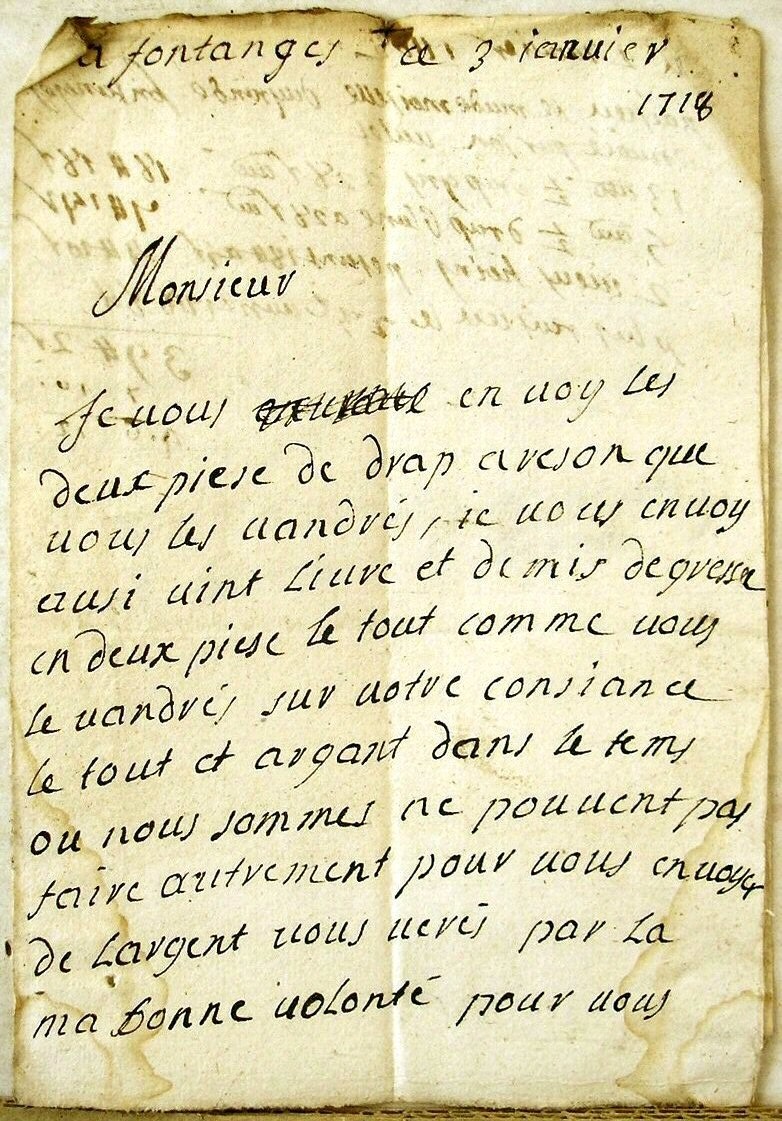 a fontanges ce 3 ianuier
1718
Monsieur
Je uous en uoy les
deux piese de drap areson que
uous les uandrés, ie uous enuoy
ausi uint liure et demis de gresse
en deux piese le tout comme uous
le uandrés sur uotre consiance
le tout et argant dans le tems
ou nous sommes ne pouuent pas
faire autrement pour uous enuoyer
de largent uous uerés par la
ma bonne uolonté pour uous